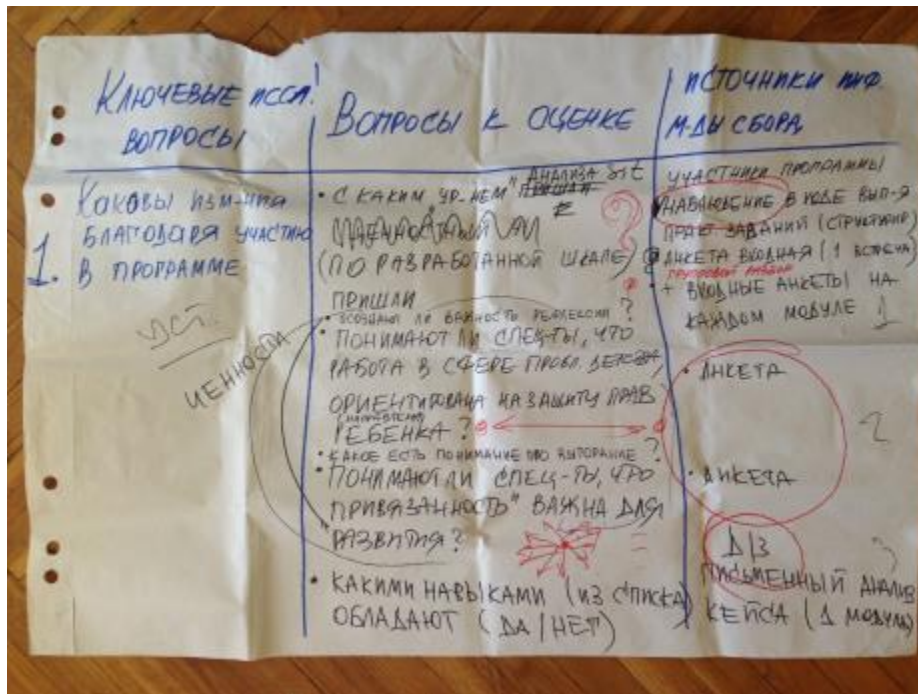 КЛЮЧЕВЫЕ ИССЛ.
ВОПРОСЫ
ВОПРОСЫ К ОЦЕНКЕ
ИСТОЧНИКИ ИНФ.
М-ДЫ СБОРА
1. КАКОВЫ ИЗМ-НИЯ
БЛАГОДАРЯ УЧАСТИЮ
В ПРОГРАММЕ
УСТ.
ЦЕННОСТИ
• С КАКИМ УР-НЕМ" АНАЛИЗА
ПРИШЛИ
(ПО РАЗРАБОТАННОЙ ШКАЛЕ)
ПРИШЛИ
• ОСОЗНАЮТ ЛИ ВАЖНОСТЬ РЕФЛЕКСИИ?
• ПОНИМАЮТ ЛИ СПЕЦ-ТЫ, ЧТО
РАБОТА В СФЕРЕ ПРОБЛ. ДЕТСТВА
ОРИЕНТИРОВАНА НА ЗАЩИТУ ПРАВ
РЕБЕНКА?
• КАКОЕ ЕСТЬ ПОНИМАНИЕ ПРО ВЫГОРАНИЕ?
• ПОНИМАЮТ ЛИ СПЕЦ-ТЫ, ЧТО
ПРИВЯЗАННОСТЬ" ВАЖНА ДЛЯ
РАЗВИТИЯ?
• КАКИМИ НАВЫКАМИ (ИЗ СПИСКА)
ОБЛАДАЮТ (ДА/НЕТ)
УЧАСТНИКИ ПРОГРАММЫ
НАБЛЮДЕНИЕ В ХОДЕ ВЫП-Я
ПРАКТ. ЗАДАНИЙ (СТРУКТУРИР)
АНКЕТА ВХОДНАЯ (1 ВСТРЕЧА)
+ ВХОДНЫЕ АНКЕТЫ НА
КАЖДОМ МОДУЛЕ 1
• АНКЕТА
• АНКЕТА
Д/З
ПИСЬМЕННЫЙ АНАЛИЗ
КЕЙСА (1 МОДУЛЬ)